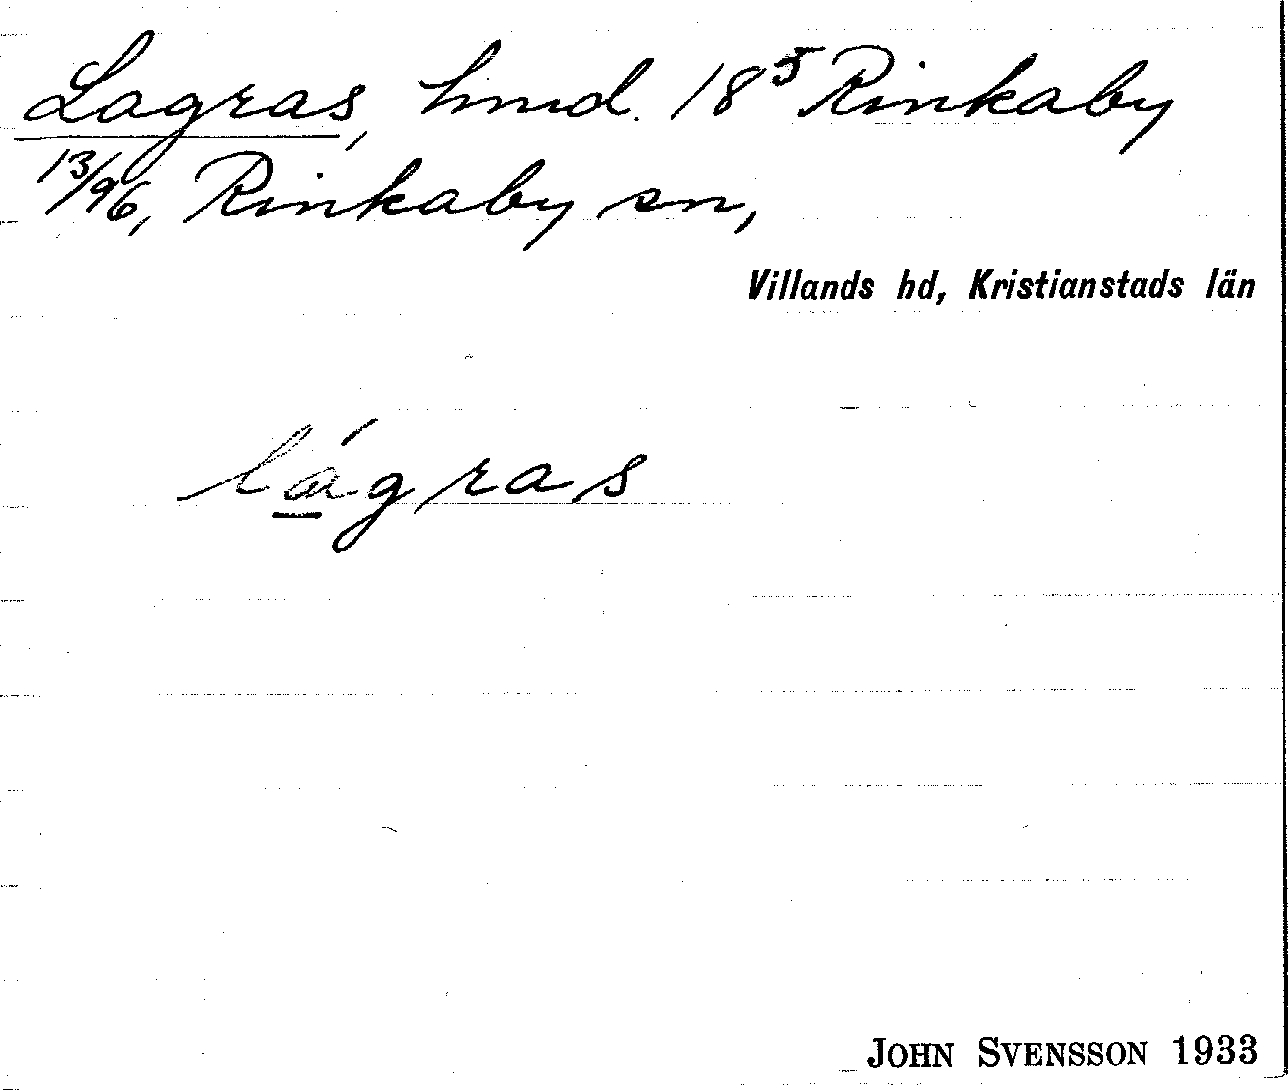 Lagras, hmd. 18⁵ Rinkaby
13/96, Rinkaby sn,
Villands hd, Kristianstads län
lágras
JOHN SVENSSON 1933